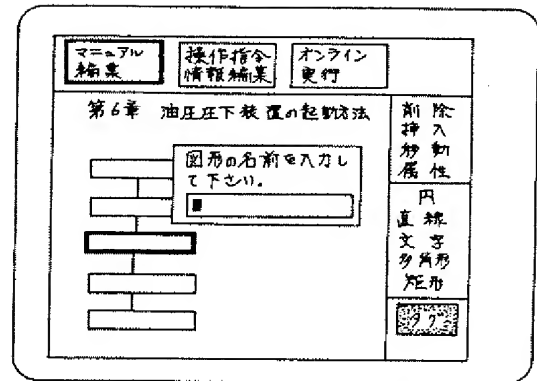 マニュアル
編集
操作指令
情報編集
オンライン
実行
第6章 油圧圧下装置の起動方法
図形の名前を入力し
て下さい。
削除
挿入
移動
属性
円
直線
文字
多角形
矩形
タグ